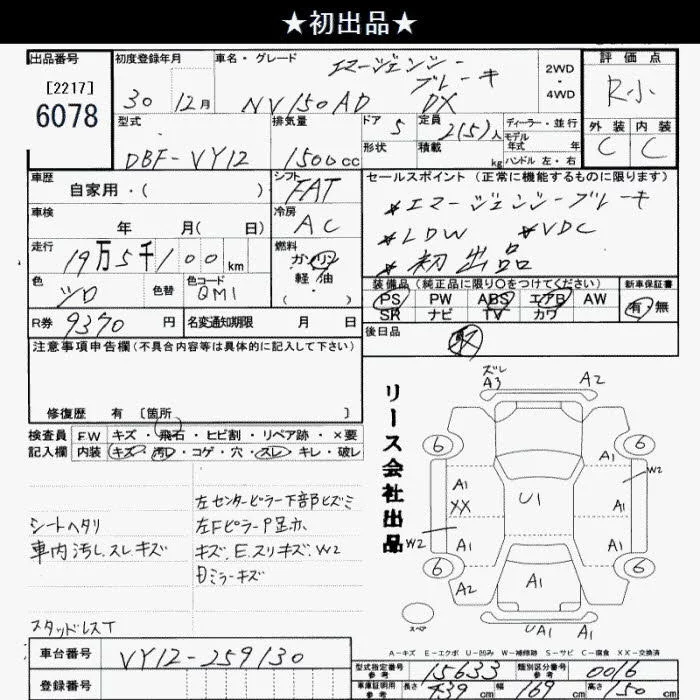 ★初出品★
出品番号
[2217]
6078
初度登録年月
30年12月
車名・グレード
エマージェンシー
ブレーキ
NV150AD DX
2WD
・
4WD
評価点
R小
外装 内装
C C
型式
DBF-VY12
排気量
1500cc
ドア 5
形状
定員 2(5)人
積載 kg
ディーラー・並行
モデル
年式 年
ハンドル 左・右
車歴
自家用・( )
シフト
FAT
車検
年 月( 日)
冷房
AC
走行
19万5千100km
燃料
ガソリン
軽油
( ・ )
色
シロ
色替
色コード
QM1
R券 9370円
名変通知期限 月 日
セールスポイント(正常に機能するものに限ります)
*エマージェンシーブレーキ
*LDW *VDC
*初出品
装備品(純正品に限り○をつけてください)
PS PW ABS エアB AW
SR ナビ TV カワ
新車保証書
有・無
後日品
取
注意事項申告欄(不具合内容等は具体的に記入して下さい)
修復歴 有 [箇所 ]
検査員
記入欄
FW キズ・飛石・ヒビ割・リペア跡・×要
内装 キズ・汚レ・コゲ・穴・スレ・キレ・破レ
シートヘタリ
車内汚し、スレキズ
スタッドレスT
左センターピラー下部ヒズミ
左FピラーP足ホ
キズ、E、スリキズ、W2
Dミラーキズ
リース会社出品
ズレ
A3
A2
6
6
A1
W2
A1
XX
U1
A1
W2
A1
A1
6
6
A2
A1
A1
スペア
UA1
A1
A-キズ E-エクボ U-凹み W-補修跡 S-サビ C-腐食 XX-交換済
車台番号
VY12-259130
登録番号
型式指定番号
参考
15633
類別区分番号
参考
0016
車庫証明用
参考
長さ 439cm
幅 169cm
高さ 150cm